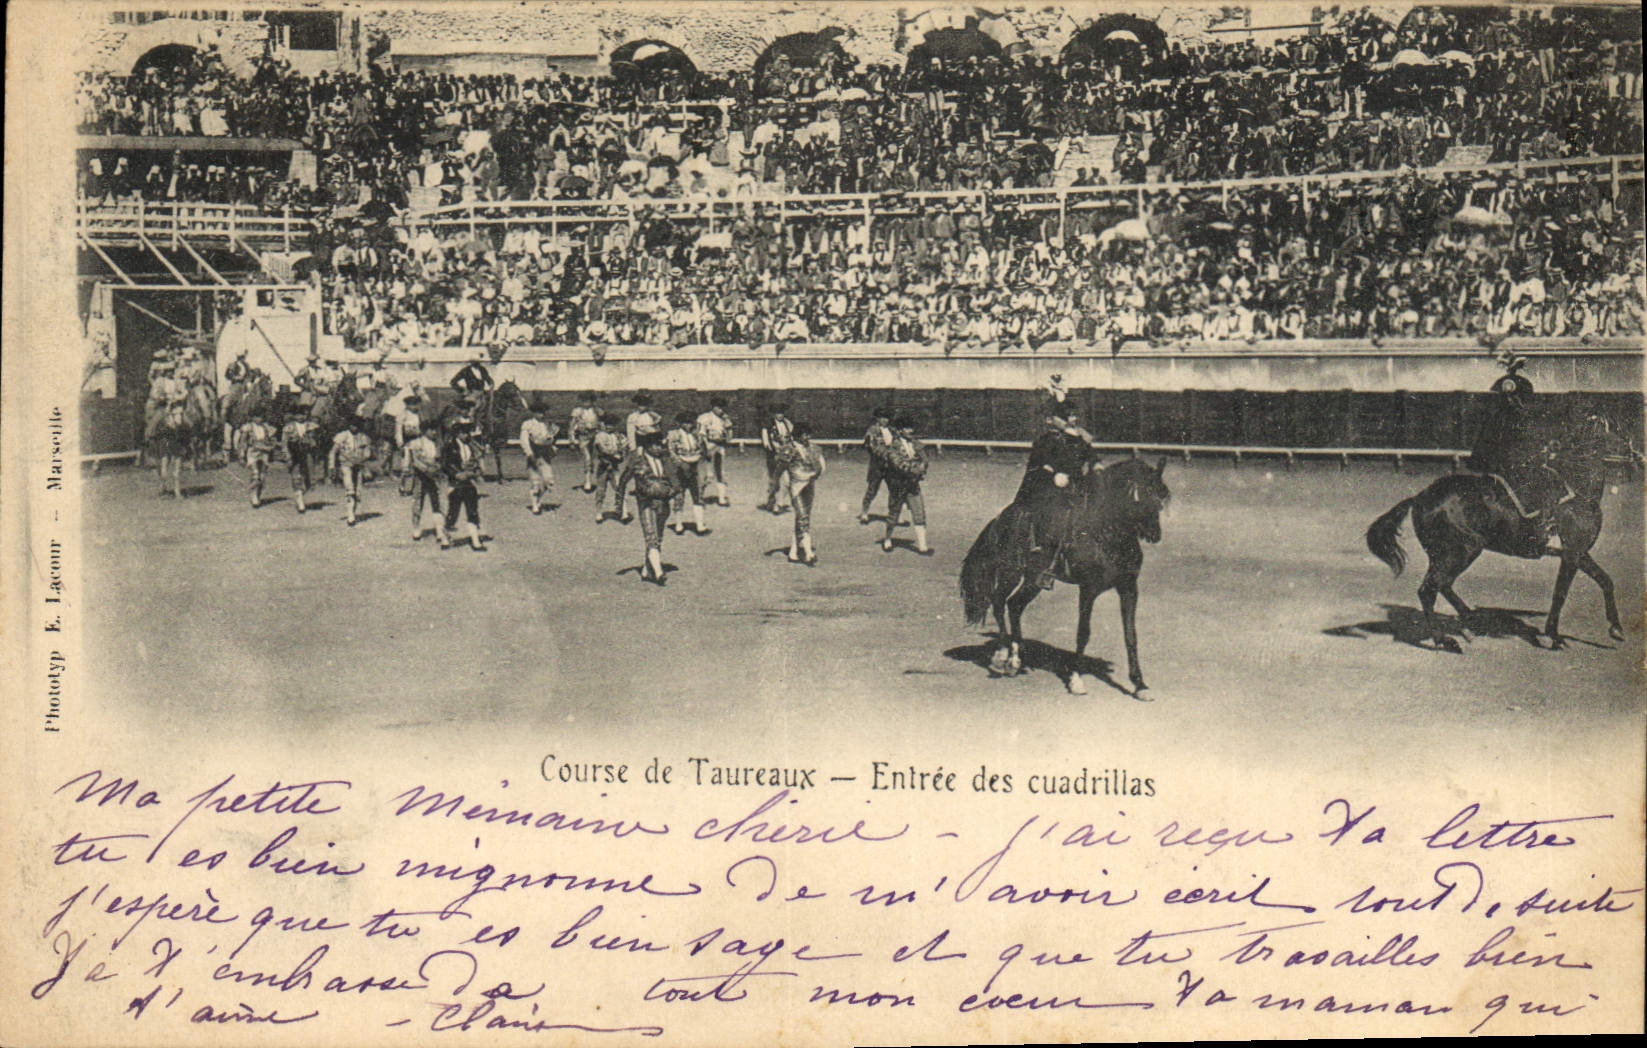 Phototyp E. Lacour - Marseille
Course de Taureaux — Entrée des cuadrillas
Ma petite Mémaine chérie - j'ai reçu ta lettre
tu es bien mignonne de m'avoir écrit tout de suite
j'espère que tu es bien sage et que tu travailles bien
Je t'embrasse de tout mon coeur ta maman qui
t'aime - Claire